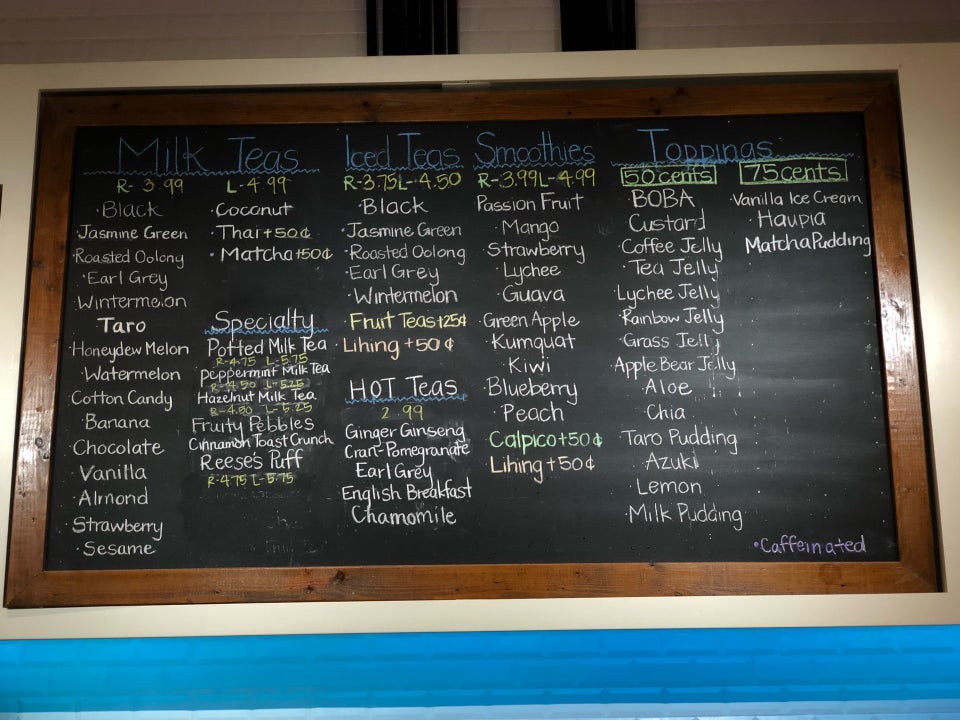 Milk Teas
R- 3.99 L- 4.99
·Black
·Jasmine Green
·Roasted Oolong
·Earl Grey
·Wintermelon
Taro
·Honeydew Melon
Watermelon
Cotton Candy
Banana
Chocolate
Vanilla
Almond
Strawberry
·Sesame
·Coconut
·Thai+50¢
·Matcha+50¢
Specialty
Potted Milk Tea
R-4.75 L-5.75
Peppermint Milk Tea
R-4.50 L-5.25
Hazelnut Milk Tea
R-4.50 L-5.25
Fruity Pebbles
Cinnamon Toast Crunch
Reese's Puff
R-4.75 L-5.75
Iced Teas
R-3.75 L-4.50
·Black
·Jasmine Green
·Roasted Oolong
·Earl Grey
·Wintermelon
·Fruit Teas+25¢
Lihing +50¢
HOT Teas
2.99
Ginger Ginseng
Cran-Pomegranate
Earl Grey
English Breakfast
Chamomile
Smoothies
R-3.99 L-4.99
Passion Fruit
Mango
Strawberry
Lychee
Guava
Green Apple
Kumquat
Kiwi
Blueberry
Peach
Calpico+50¢
Lihing+50¢
Toppings
50cents
BOBA
Custard
·Coffee Jelly
·Tea Jelly
Lychee Jelly
Rainbow Jelly
Grass Jelly
Apple Bear Jelly
Aloe
Chia
Taro Pudding
Azuki
Lemon
Milk Pudding
75cents
Vanilla Ice Cream
Haupia
Matcha Pudding
·Caffeinated